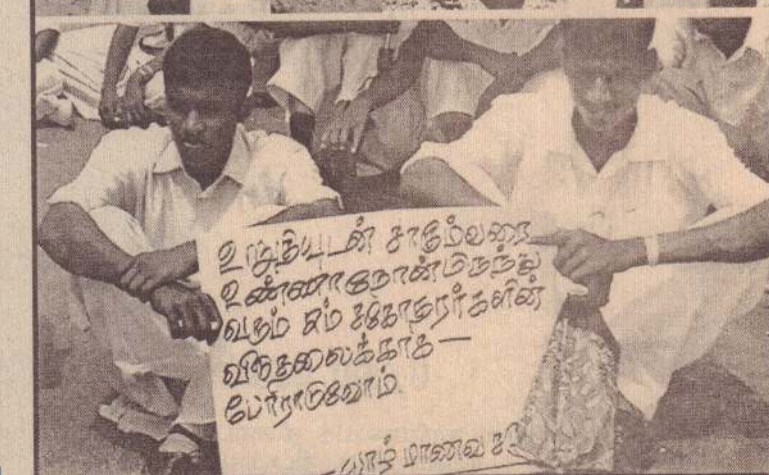 உறுதியுடன் சாகும்வரை
உண்ணாநோன்பிருந்து
வரும் எம் சகோதரர்களின்
விடுதலைக்காக –
போராடுவோம்.
– யாழ் மாணவ